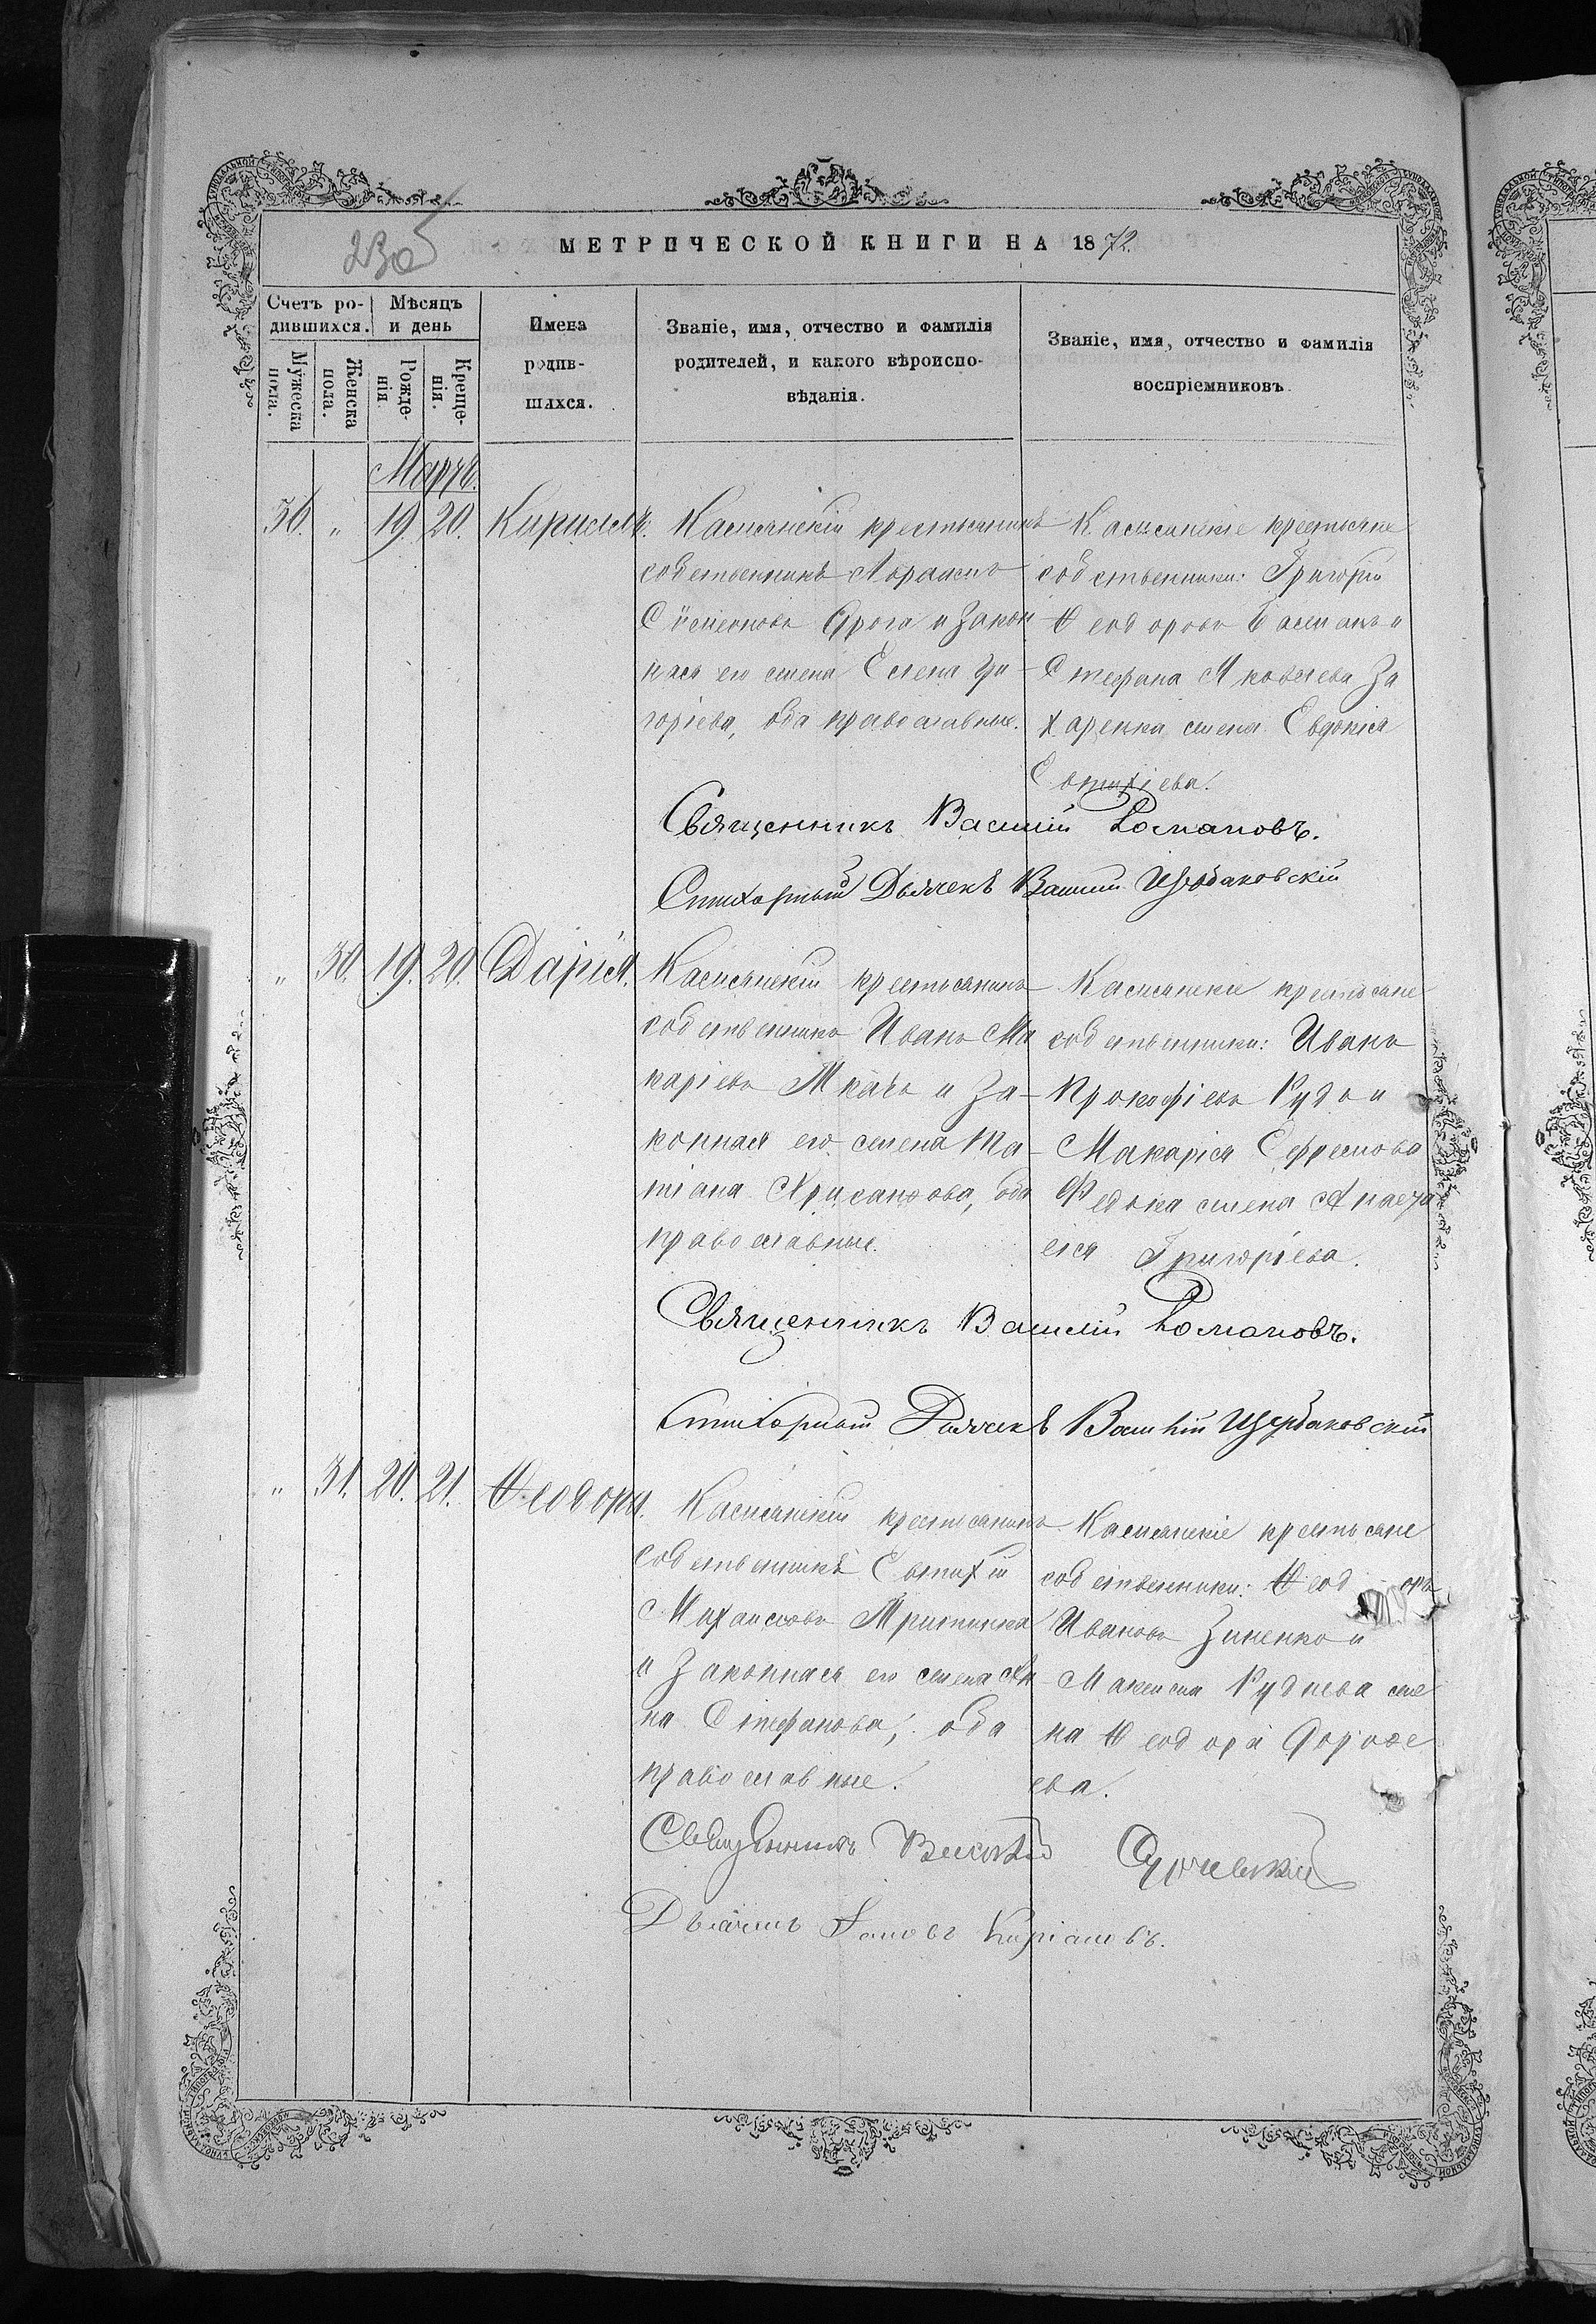 МЕТРИЧЕСКОЙ КНИГИ НА 1872
Счетъ родившихся.
Мужеска пола.
Женска пола.
Мѣсяцъ и день
Рожденія.
Крещенія.
Имена родившихся.
Званіе, имя, отчество и фамилія
родителей, и какого вѣроиспо-
вѣданія.
Званіе, имя, отчество и фамилія
воспріемниковъ.
Мартъ.
36. " 19. 20. Кириллъ.
крестьянинъ
собственникъ
и закон
ная его жена Елена Гри-
горіева, оба православные.
крестьяне
собственники: Григорій
Ѳеодоровъ и
Стефана Яковлева За
харенка жена Евдокія
Евтихіева.
Священникъ Василій Романовъ.
Стихарный Дьячекъ Василій Щербаковскій
" 30. 19. 20. Дарія.
крестьянинъ
собственникъ Иванъ Ма
каріевъ Ткачъ и за-
конная его жена Та-
тіана Хрисанфова, оба
православные.
крестьяне
собственники: Иванъ
Прокофіевъ и
Макарія Ефремова
Федька жена Анаста
сія Григоріева.
Священникъ Василій Романовъ.
Стихарный Дьячекъ Василій Щербаковскій
" 31. 20. 21. Ѳеодора.
крестьянинъ
собственникъ Евтихій
Михаиловъ
и законная его жена Ан
на Стефанова, оба
православные.
крестьяне
собственники: Ѳеодоръ
Ивановъ Зиненко и
Максима Руднева же
на Ѳеодора Дороѳе
ева.
Священникъ
Дьячекъ